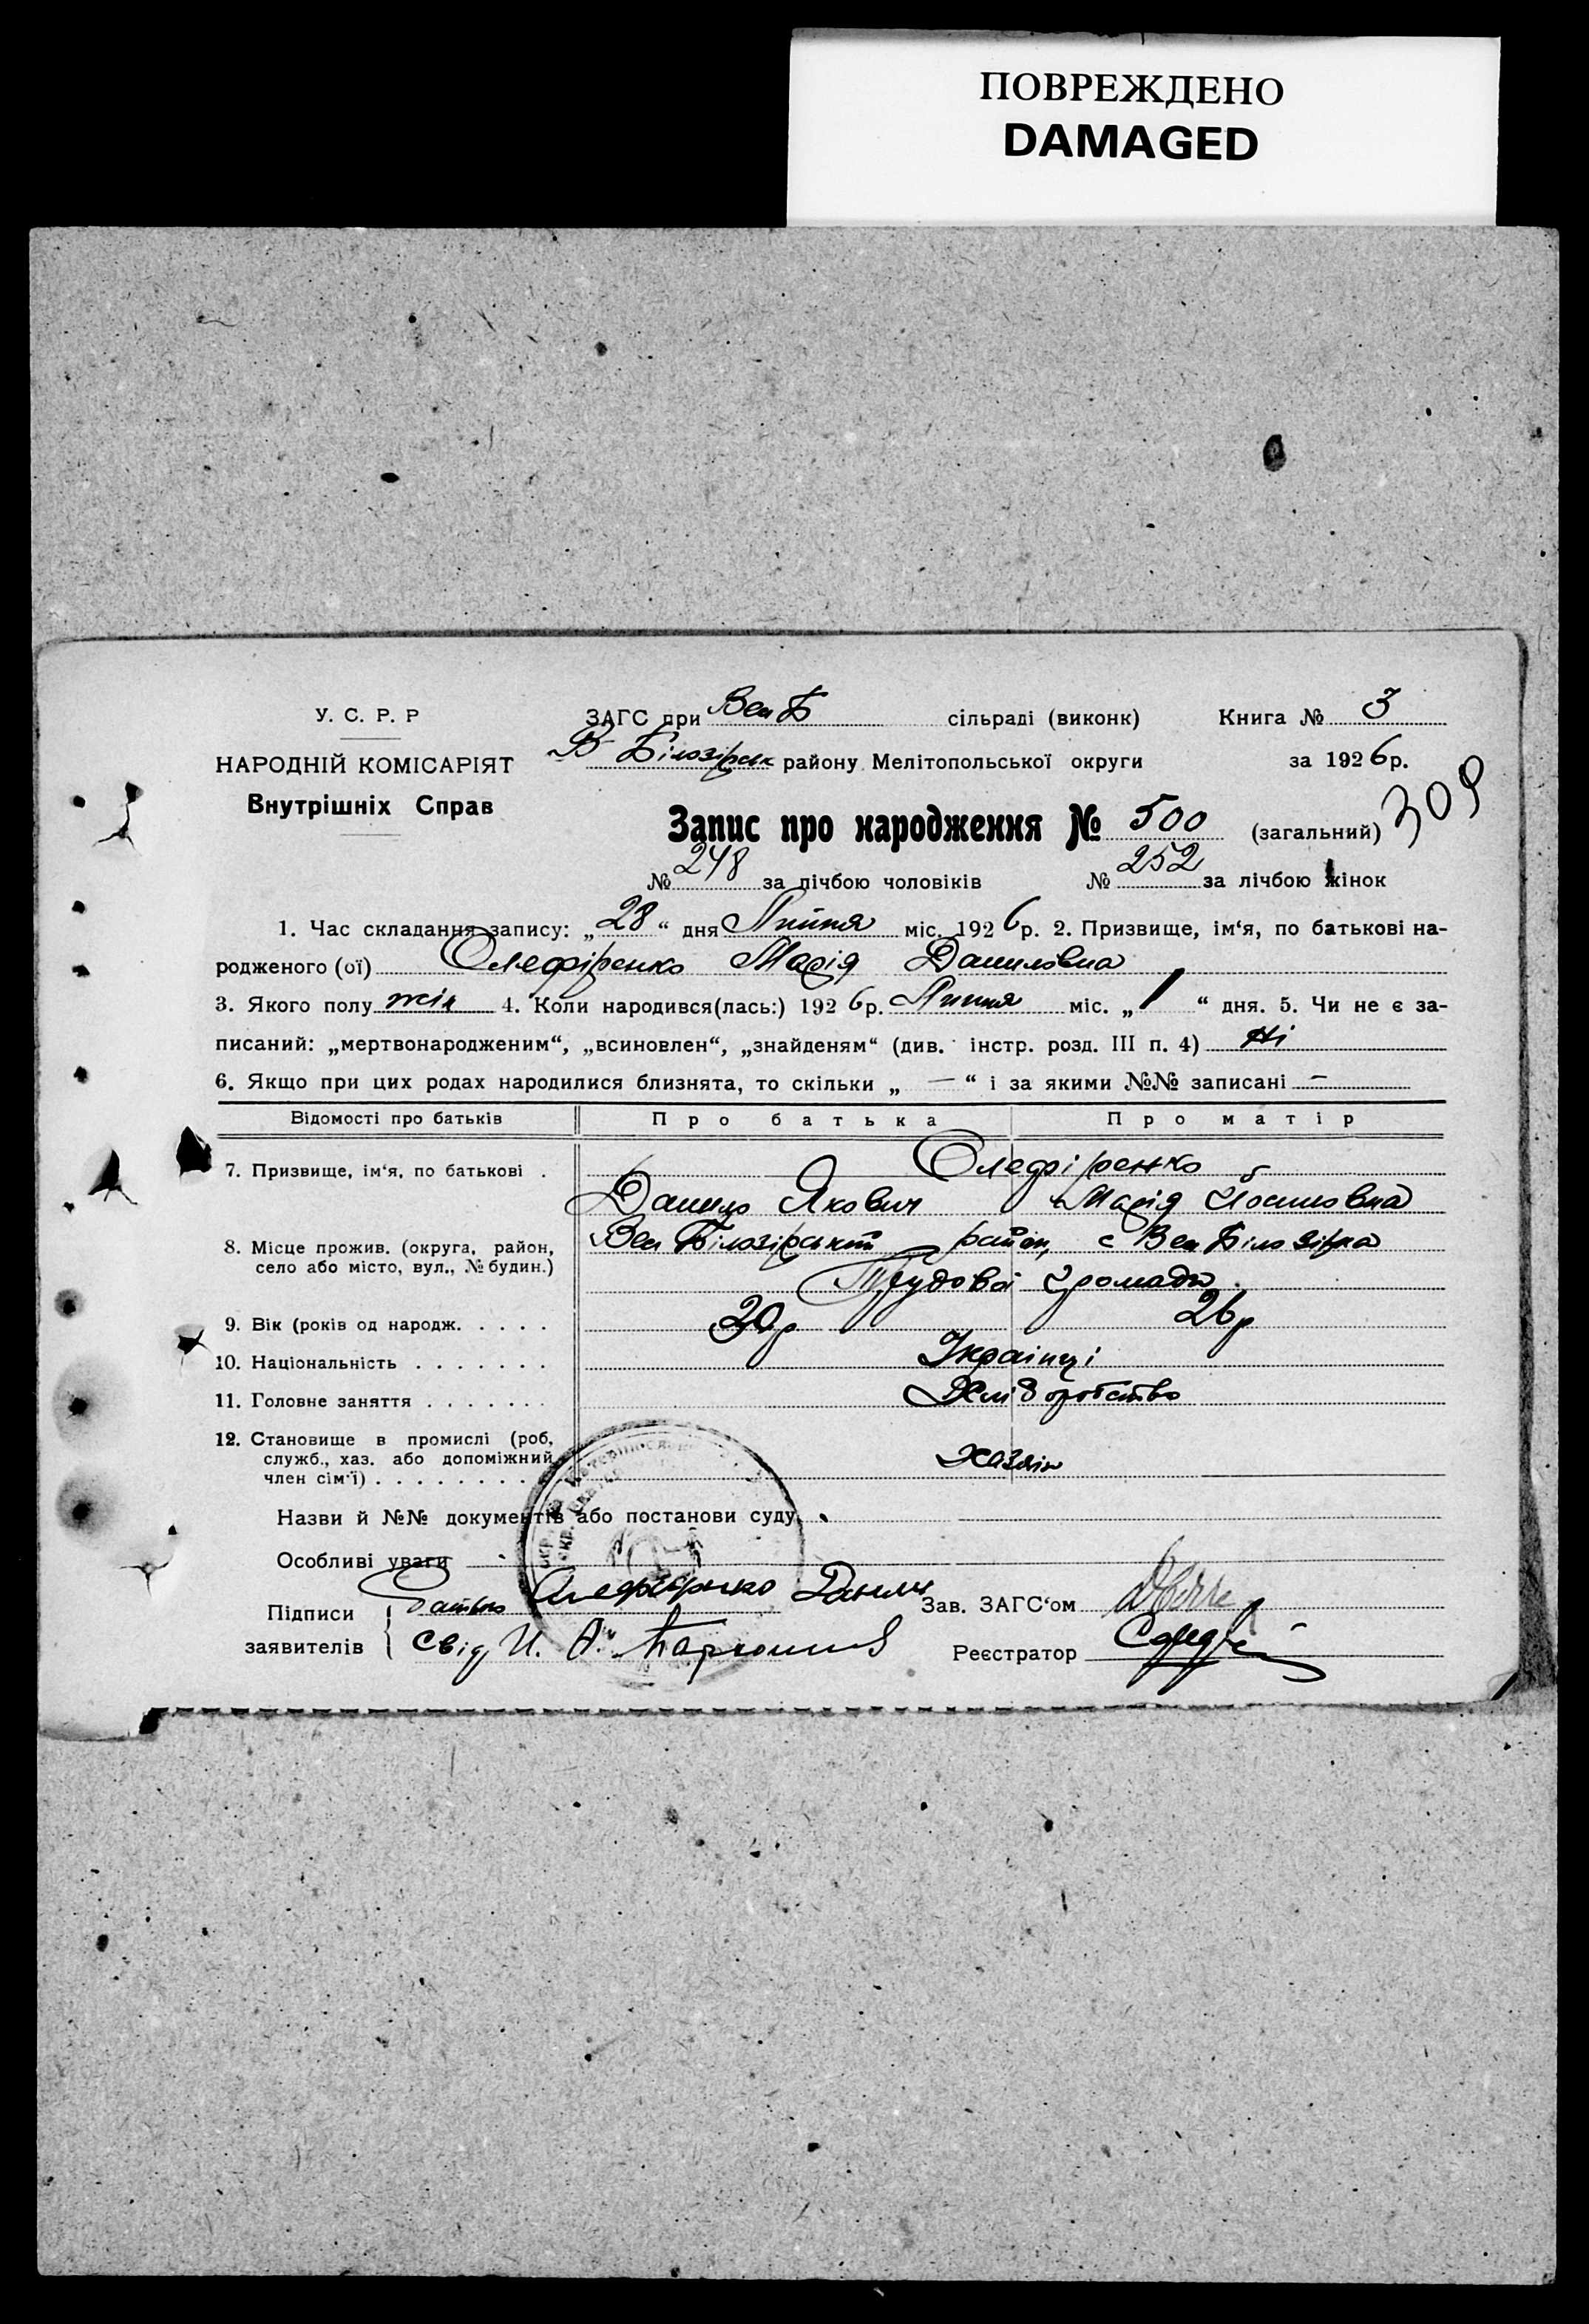 ПОВРЕЖДЕНО
DAMAGED
У. С. Р. Р
НАРОДНІЙ КОМІСАРІЯТ
Внутрішніх Справ
ЗАГС при Вел Б сільраді (виконк) Книга № 3
В Білозірськ району Мелітопольської округи за 1926р.
309
Запис про народження № 500 (загальний)
№ 248 за лічбою чоловіків № 252 за лічбою жінок
1. Час складання запису: „28“ дня Липня міс. 1926р. 2. Призвище, ім‘я, по батькові на-
родженого (ої) Олефіренко Марія Даниловна
3. Якого полу жін 4. Коли народився(лась:) 1926р. Липня міс. „1“ дня. 5. Чи не є за-
писаний: „мертвонародженим“, „всиновлен“, „знайденям“ (див. інстр. розд. III п. 4) Ні
6. Якщо при цих родах народилися близнята, то скільки „ — “ і за якими №№ записані —
Відомості про батьків Про батька Про матір
7. Призвище, ім‘я, по батькові . Олефіренко
Данило Якович Марія Йосиповна
8. Місце прожив. (округа, район, село або місто, вул., № будин.) Вел Білозірський район, с Вел Білозірка
Трудової громади
9. Вік (років од народж. . . . . 30р 26р
10. Національність . . . . . . . Українці
11. Головне заняття . . . . . . . Хліборобство
12. Становище в промислі (роб, служб., хаз. або допоміжний член сім‘ї) . . . . . . . . Хазяїн
Назви й №№ документів або постанови суду
Особливі уваги
Підписи заявителів { батько Олефіренко Данило Зав. ЗАГС‘ом
Свід И. А. Реєстратор